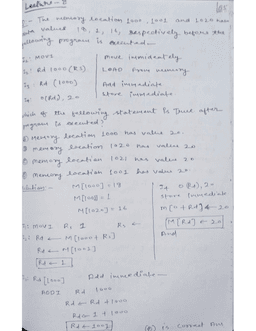 Lecture - 8
:- The memory location 1000, 1001 and 1020 have
data values 18, 1, 16, respectively before the
following program is executed -
I1: MOVI | Move immediately
I2: Rd 1000 (Rs) | LOAD from memory
I3: Rd (1000) | Add immediate
I4: 0(Rd), 20 | Store immediate
which of the following statement is True after
program is executed?
Memory location 1000 has value 20.
memory location 1020 has value 20
memory location 1021 has value 20
Memory location 1001 has value 20.
Solution:- M[1000] = 18
M[1001] = 1
M[1020] = 16
I4 0(Rd), 20
store immediate
M[0+Rd] ← 20
M[Rd] ← 20
And
I1: MOVI Rs 1 Rs ←
I2: Rd ← M[1000 + Rs]
Rd ← M[1001]
Rd ← 1
Rd [1000] Add immediate
ADDI Rd 1000
Rd ← Rd + 1000
Rd ← 1 + 1000
Rd ← 1001
is correct Ans